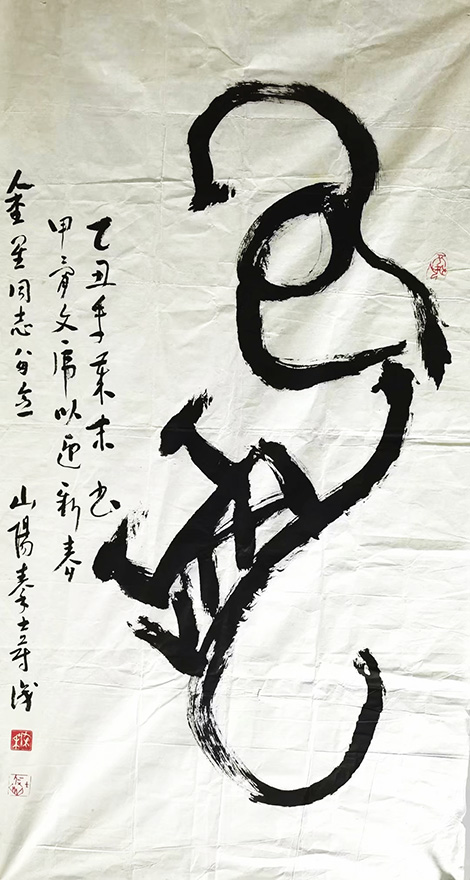 虎
乙丑年歲末 书
甲骨文虎以迎新春
金星同志留念 山陽秦士